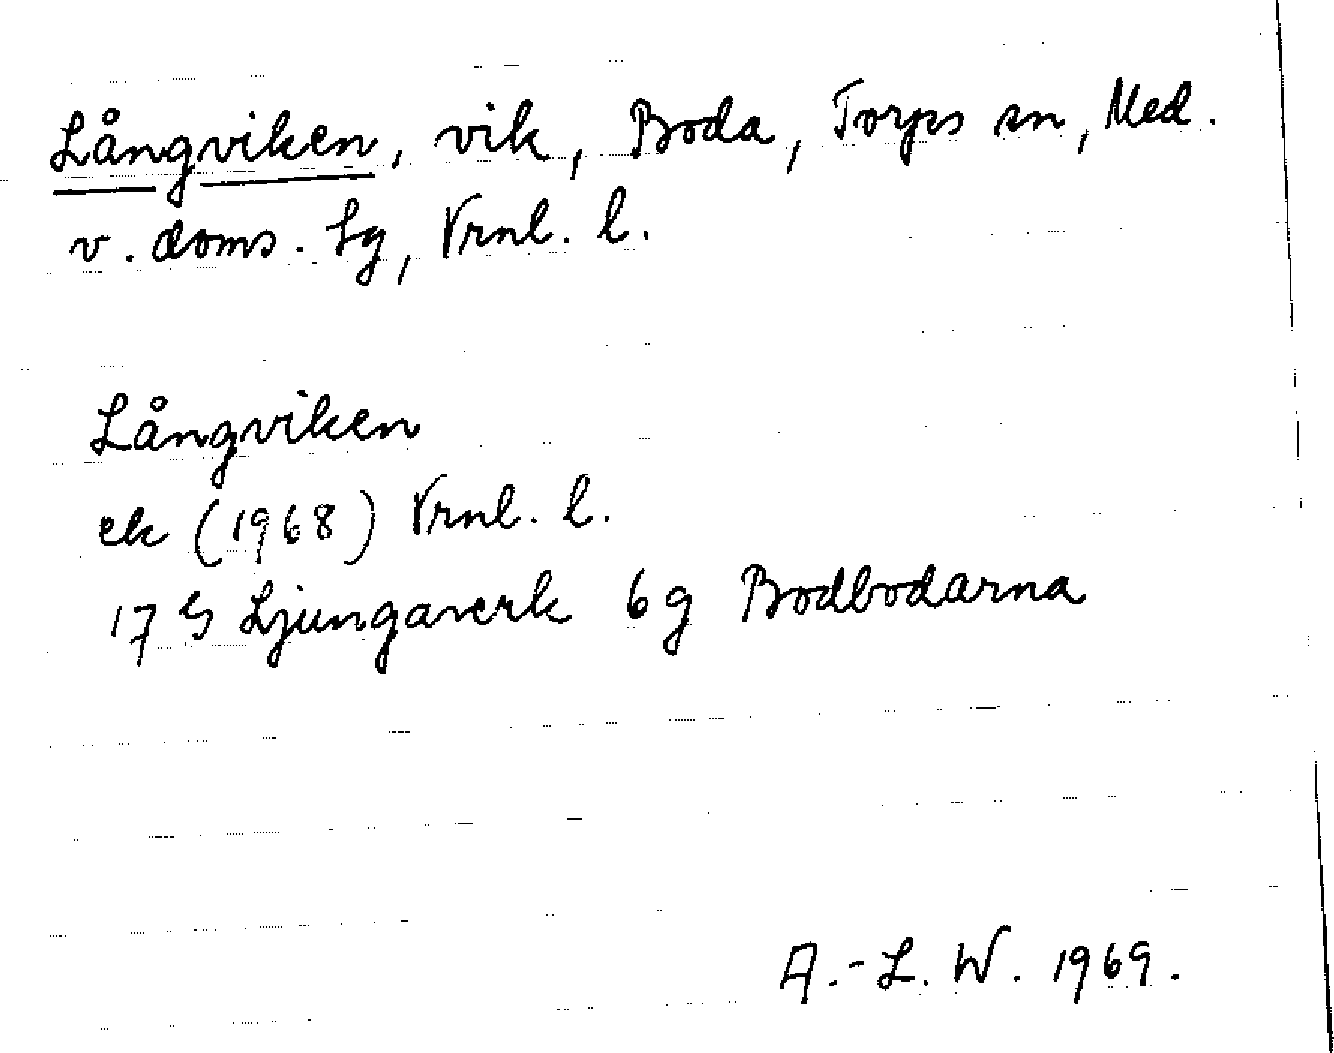 Långviken, vik, Boda, Torps sn, Med.
v. doms. Lg, Vrnl. l.
Långviken
ek (1968) Vrnl. l.
17 G Ljungaverk 6g Bodbodarna
A.-L. W. 1969.